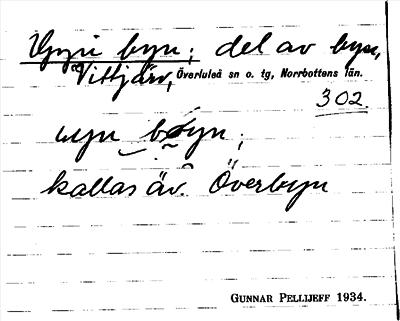 Uppi byn; del av byn,
Vittjärv, Överluleå sn o. tg, Norrbottens län.
302.
upn byn;
kallas äv. Överbyn
GUNNAR PELLIJEFF 1934.